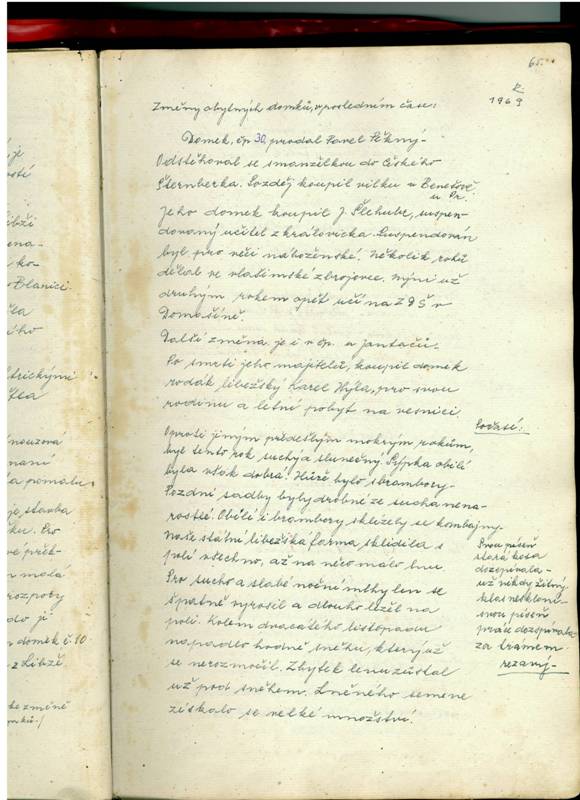 65.
R.
1969
Změny obytných domků, v posledním čase:
Domek, čp 30, prodal Pavel Pěkný-
Odstěhoval se s manželkou do Českého
Šternberka. Později koupil vilku v Benešově
u Pr.
Jeho domek koupil J. Šlehubr, suspen-
dovaný učitel z Královicka. Suspendován
byl pro věci náboženské. Několik roků
dělal ve vlašimské zbrojovce. Nyní už
druhým rokem opět učí na ZDŠ v
Domašíně.
Další změna je i v čp. u Jantačů.
Po smrti jeho majitelů, koupil domek
rodák libežský Karel Hýla, pro svou
rodinu a letní pobyt na vesnici.
Počasí:
Oproti jiným předešlým mokrým rokům,
byl tento rok suchý a slunečný. Sýpka obilí
byla však dobrá. Hůře bylo s brambory-
Pozdní sadby byly drobné ze sucha nena-
rostlé. Obilí i brambory sklízely se kombajny.
Naše státní libežská farma sklidila s
polí všechno, až na něco málo lnu
Pro sucho a slabé noční mlhy len se
špatně vyrosil a dlouho ležel na
poli. Kolem dvacátého listopadu
napadlo hodně sněhu, který už
se nerozmočil. Zbytek lenu zůstal
už pod sněhem. Lněného semene
získalo se velké množství.
Svou píseň
stará kosa
dozpívala-
už nikdy žitný
klas neskloní-
svou píseň
práce dozpívala-
za trámem
rezaví-
je
Libži
ena-
ko-
Blanici
trickými
nouzová
a pomalu
je, stavba
Pro
malá
rozpoty
domek č. 10
z Libže
ke změně